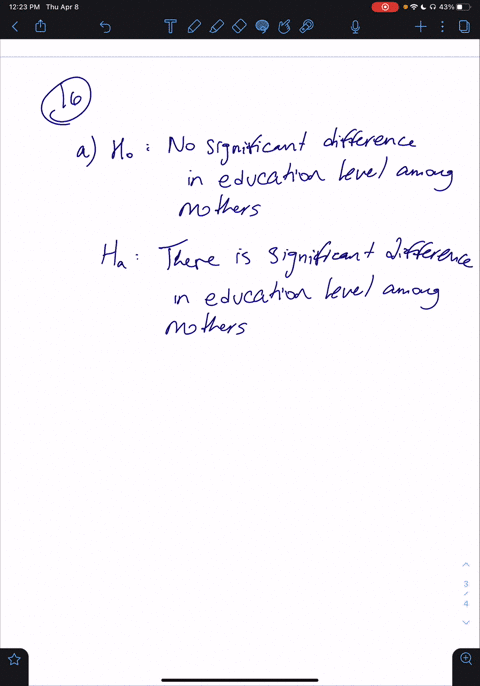 12:23 PM Thu Apr 8
43%
T
16
a) H₀ : No significant difference
in education level among
mothers
Hₐ : There is significant difference
in education level among
mothers
3
/
4